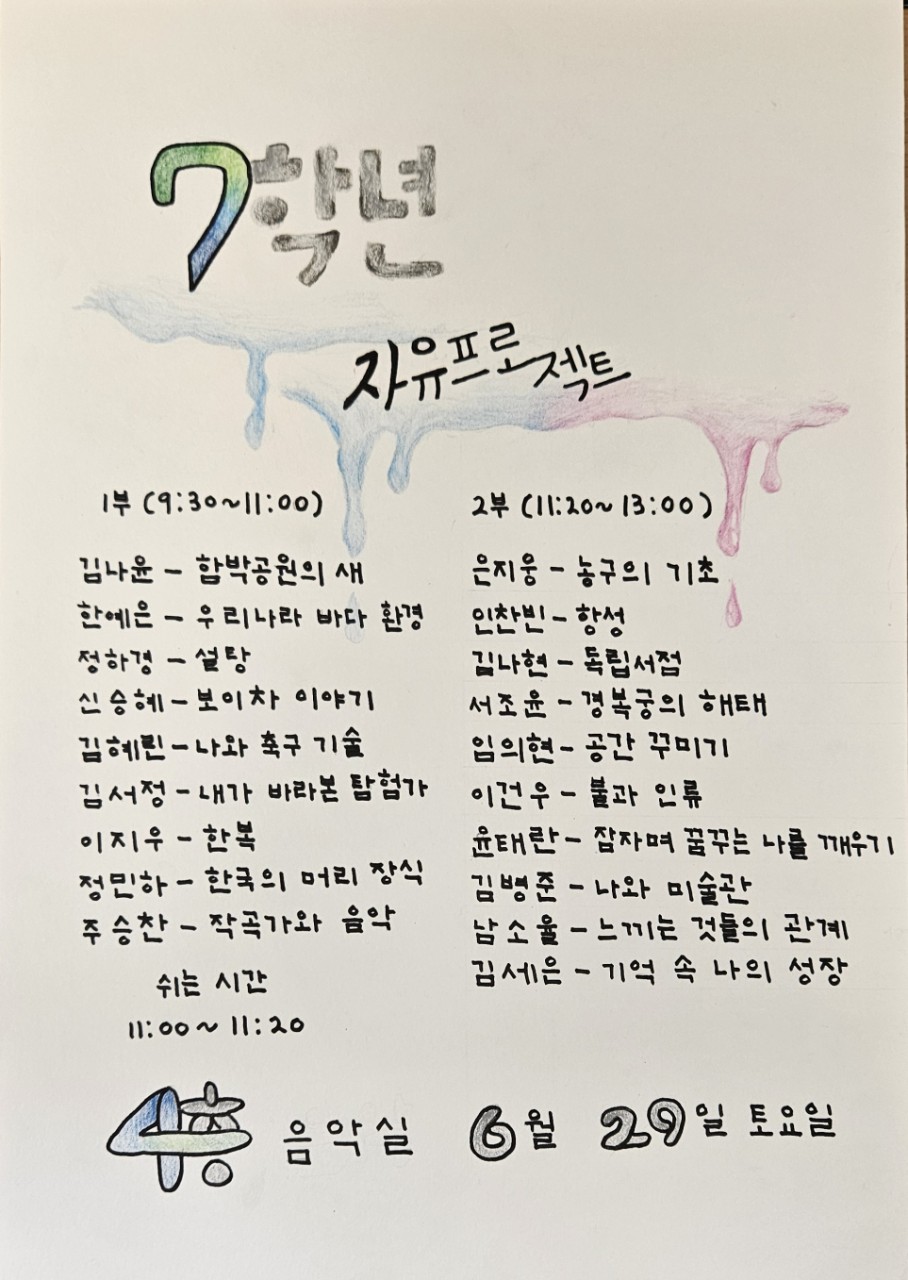 7학년
자유프로젝트
1부 (9:30~11:00)
김나윤 - 함박공원의 새
한예은 - 우리나라 바다 환경
정하경 - 설탕
신승혜 - 보이차 이야기
김혜린 - 나와 축구 기술
김서정 - 내가 바라본 탐험가
이지우 - 한복
정민하 - 한국의 머리 장식
주승찬 - 작곡가와 음악
쉬는 시간
11:00~11:20
2부 (11:20~13:00)
은지웅 - 농구의 기초
인찬빈 - 항성
김나현 - 독립서점
서조윤 - 경복궁의 해태
임의현 - 공간 꾸미기
이건우 - 불과 인류
윤태란 - 잠자며 꿈꾸는 나를 깨우기
김병준 - 나와 미술관
남소율 - 느끼는 것들의 관계
김세은 - 기억 속 나의 성장
4층 음악실 6월 29일 토요일